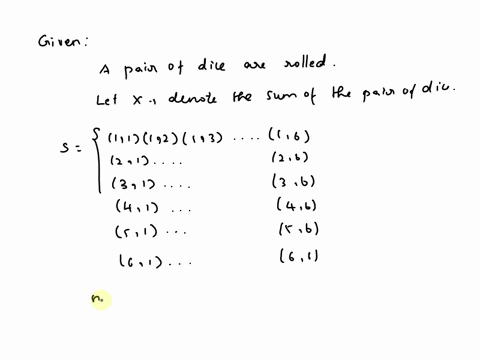 Given:
A pair of dice are rolled.
Let X, denote the sum of the pair of dic.
S = { (1,1) (1,2) (1,3) .... (1,6)
(2,1) .... (2,6)
(3,1) .... (3,6)
(4,1) ... (4,6)
(5,1) ... (5,6)
(6,1) ... (6,1)
n